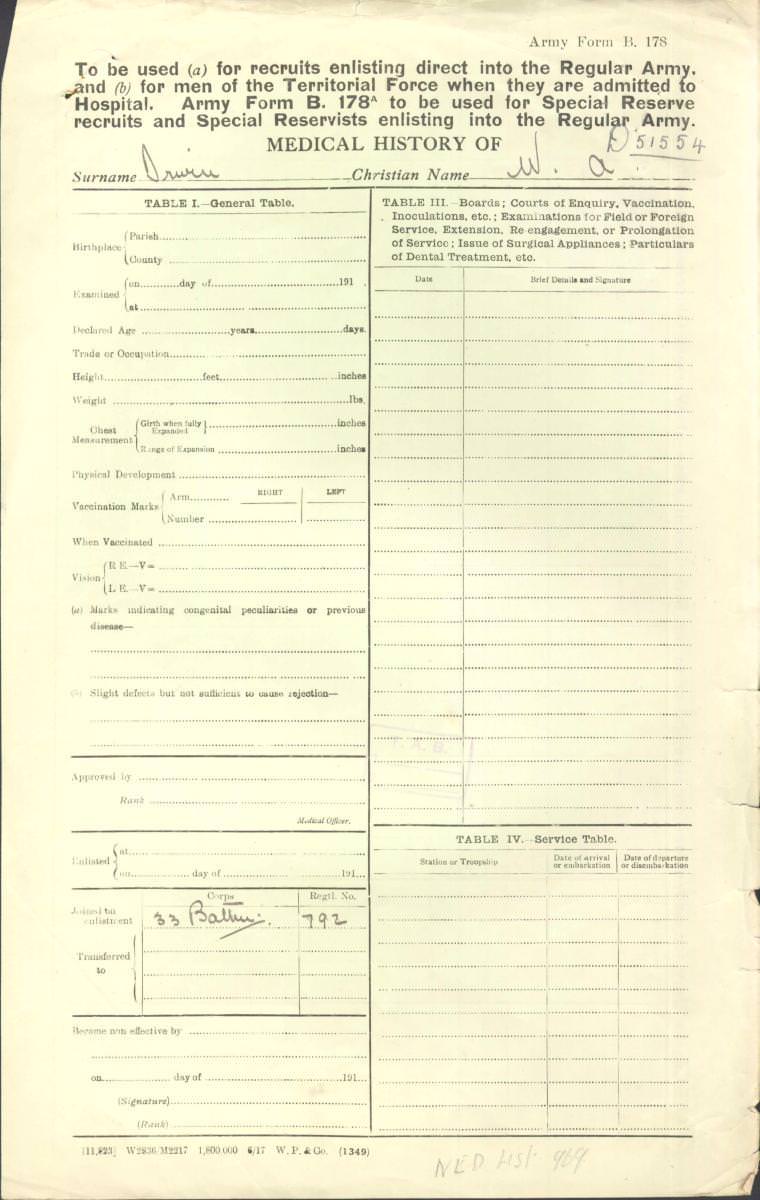 Army Form B. 178
To be used (a) for recruits enlisting direct into the Regular Army,
and (b) for men of the Territorial Force when they are admitted to
Hospital. Army Form B. 178A to be used for Special Reserve
recruits and Special Reservists enlisting into the Regular Army.
MEDICAL HISTORY OF D 51554
Surname Irwin Christian Name W. A.
TABLE I.—General Table.
Birthplace { Parish
County
Examined { on day of 191 .
at
Declared Age years days.
Trade or Occupation
Height feet inches
Weight lbs.
Chest Measurement { Girth when fully Expanded } inches
Range of Expansion inches
Physical Development
RIGHT LEFT
Vaccination Marks { Arm
Number
When Vaccinated
Vision { R E.—V=
L E.—V=
(a) Marks indicating congenital peculiarities or previous
disease—
(b) Slight defects but not sufficient to cause rejection—
Approved by
Rank
Medical Officer.
Enlisted { at
on day of 191
Corps Regtl. No.
Joined on enlistment 33 Battn. 792
Transferred to
Became non effective by
on day of 191
(Signature)
(Rank)
TABLE III.—Boards; Courts of Enquiry, Vaccination,
Inoculations, etc.; Examinations for Field or Foreign
Service, Extension, Re-engagement, or Prolongation
of Service; Issue of Surgical Appliances; Particulars
of Dental Treatment, etc.
Date Brief Details and Signature
T. A. B.
TABLE IV.—Service Table.
Station or Troopship Date of arrival or embarkation Date of departure or disembarkation
[11,823] W2836/M2217 1,800,000 6/17 W. P. & Co. (1349)
NED List 969